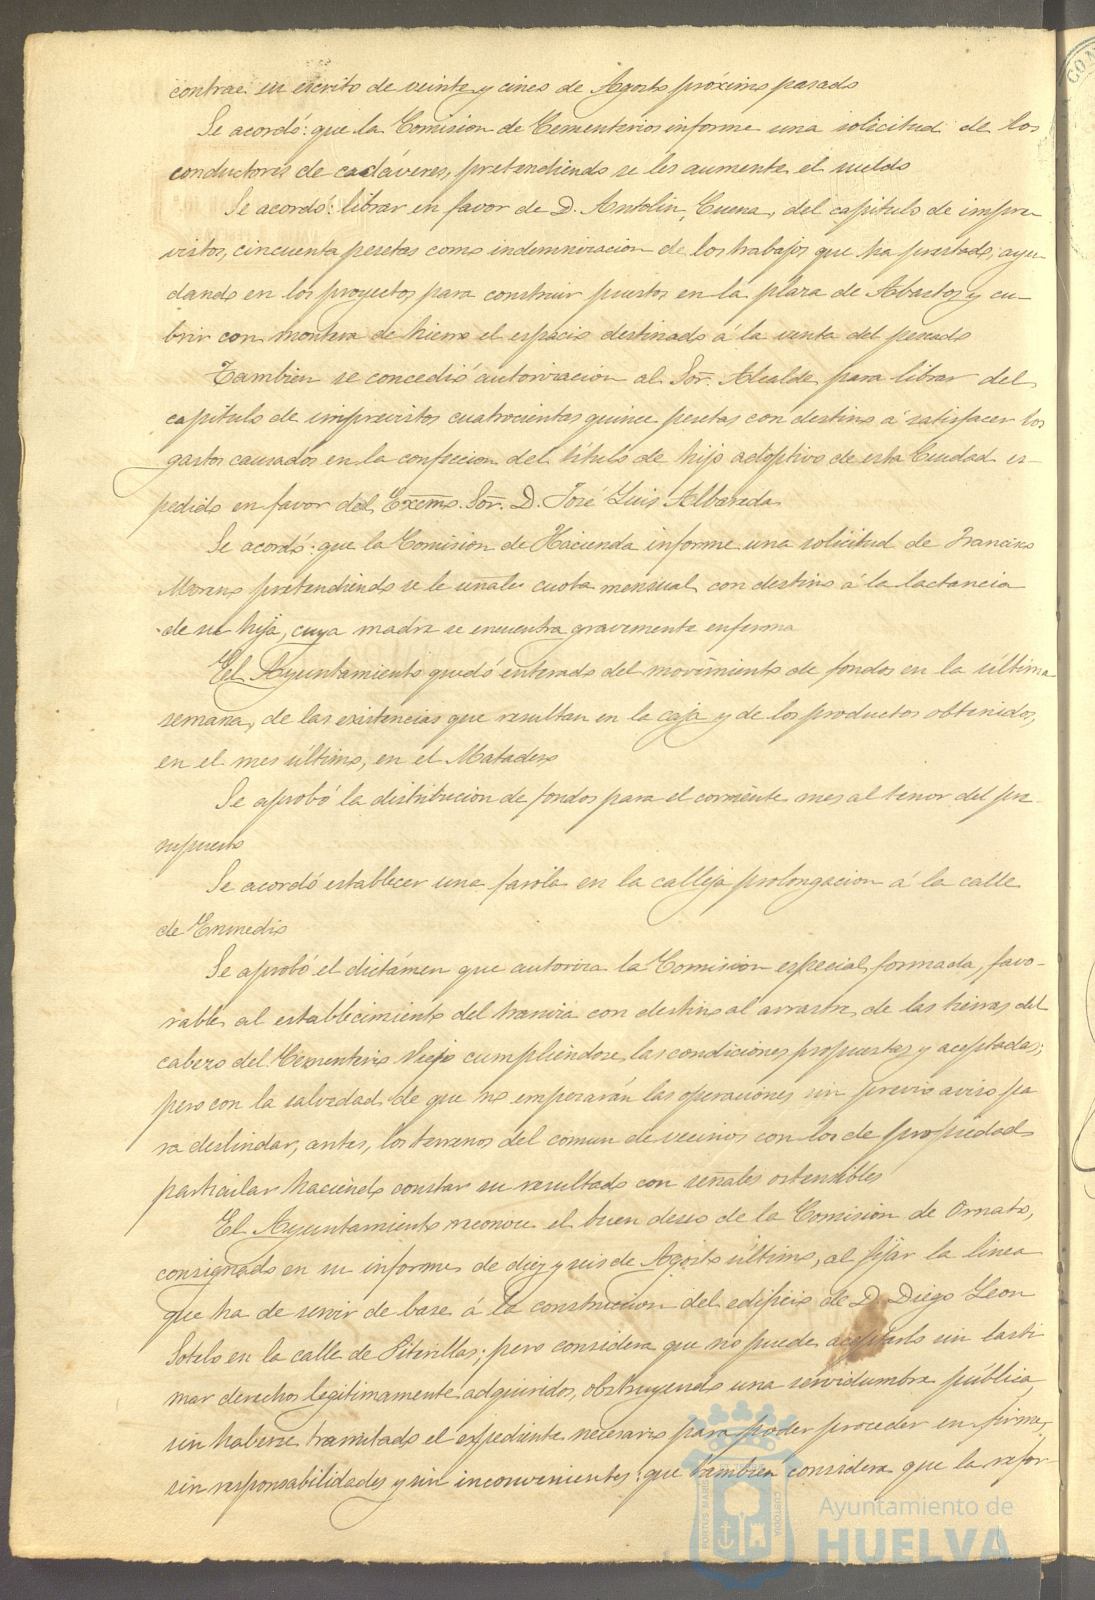 contrae en escrito de veinte y cinco de Agosto próximo pasado
Se acordó: que la Comision de Cementerios informe una solicitud de los
conductores de cadáveres, pretendiendo se les aumente el sueldo
Se acordó: librar en favor de D. Antolin Cuena, del capitulo de impre-
vistos, cincuenta pesetas como indemnizacion de los trabajos que ha prestado, ayu-
dando en los proyectos para construir puestos en la plaza de Abastos y cu-
brir con montera de hierro el espacio destinado á la venta del pescado
Tambien se concedió autorizacion al Sor. Alcalde para librar del
capitulo de imprevistos cuatrocientas quince pesetas con destino á satisfacer los
gastos causados en la confeccion del titulo de hijo adoptivo de esta Ciudad es-
pedido en favor del Excmo. Sor. D. José Luis Albareda
Se acordó: que la Comision de Hacienda informe una solicitud de Francisco
Moreno pretendiendo se le señale cuota mensual con destino á la lactancia
de su hija, cuya madre se encuentra gravemente enferma
El Ayuntamiento quedó enterado del movimiento de fondos en la última
semana, de las existencias que resultan en la caja y de los productos obtenidos,
en el mes último, en el Matadero
Se aprobó la distribucion de fondos para el corriente mes al tenor del pre-
supuesto
Se acordó establecer una farola en la calleja prolongacion á la calle
de Enmedio
Se aprobó el dictámen que autoriza la Comision especial formada, favo-
rable al establecimiento del tranvia con destino al arrastre de las tierras del
cabezo del Cementerio Viejo cumpliendose las condiciones propuestas y aceptadas;
pero con la salvedad de que no empezarán las operaciones sin previo aviso pa
ra deslindar, antes, los terrenos del comun de vecinos con los de propiedad
particular haciendo constar su resultado con señales ostensibles
El Ayuntamiento reconoce el buen deseo de la Comision de Ornato,
consignado en su informe de diez y seis de Agosto último, al fijar la linea
que ha de servir de base á la construccion del edificio de D. Diego Leon
Sotelo en la calle de Piterillas; pero considera que no puede aceptarlo sin lasti
mar derechos legitimamente adquiridos, obstruyendo una servidumbre pública,
sin haberse tramitado el expediente necesario para poder proceder en firme,
sin responsabilidades y sin inconvenientes: que tambien considera que la refor-
PORTUS MARIS
CUSTODIA
Ayuntamiento de
HUELVA